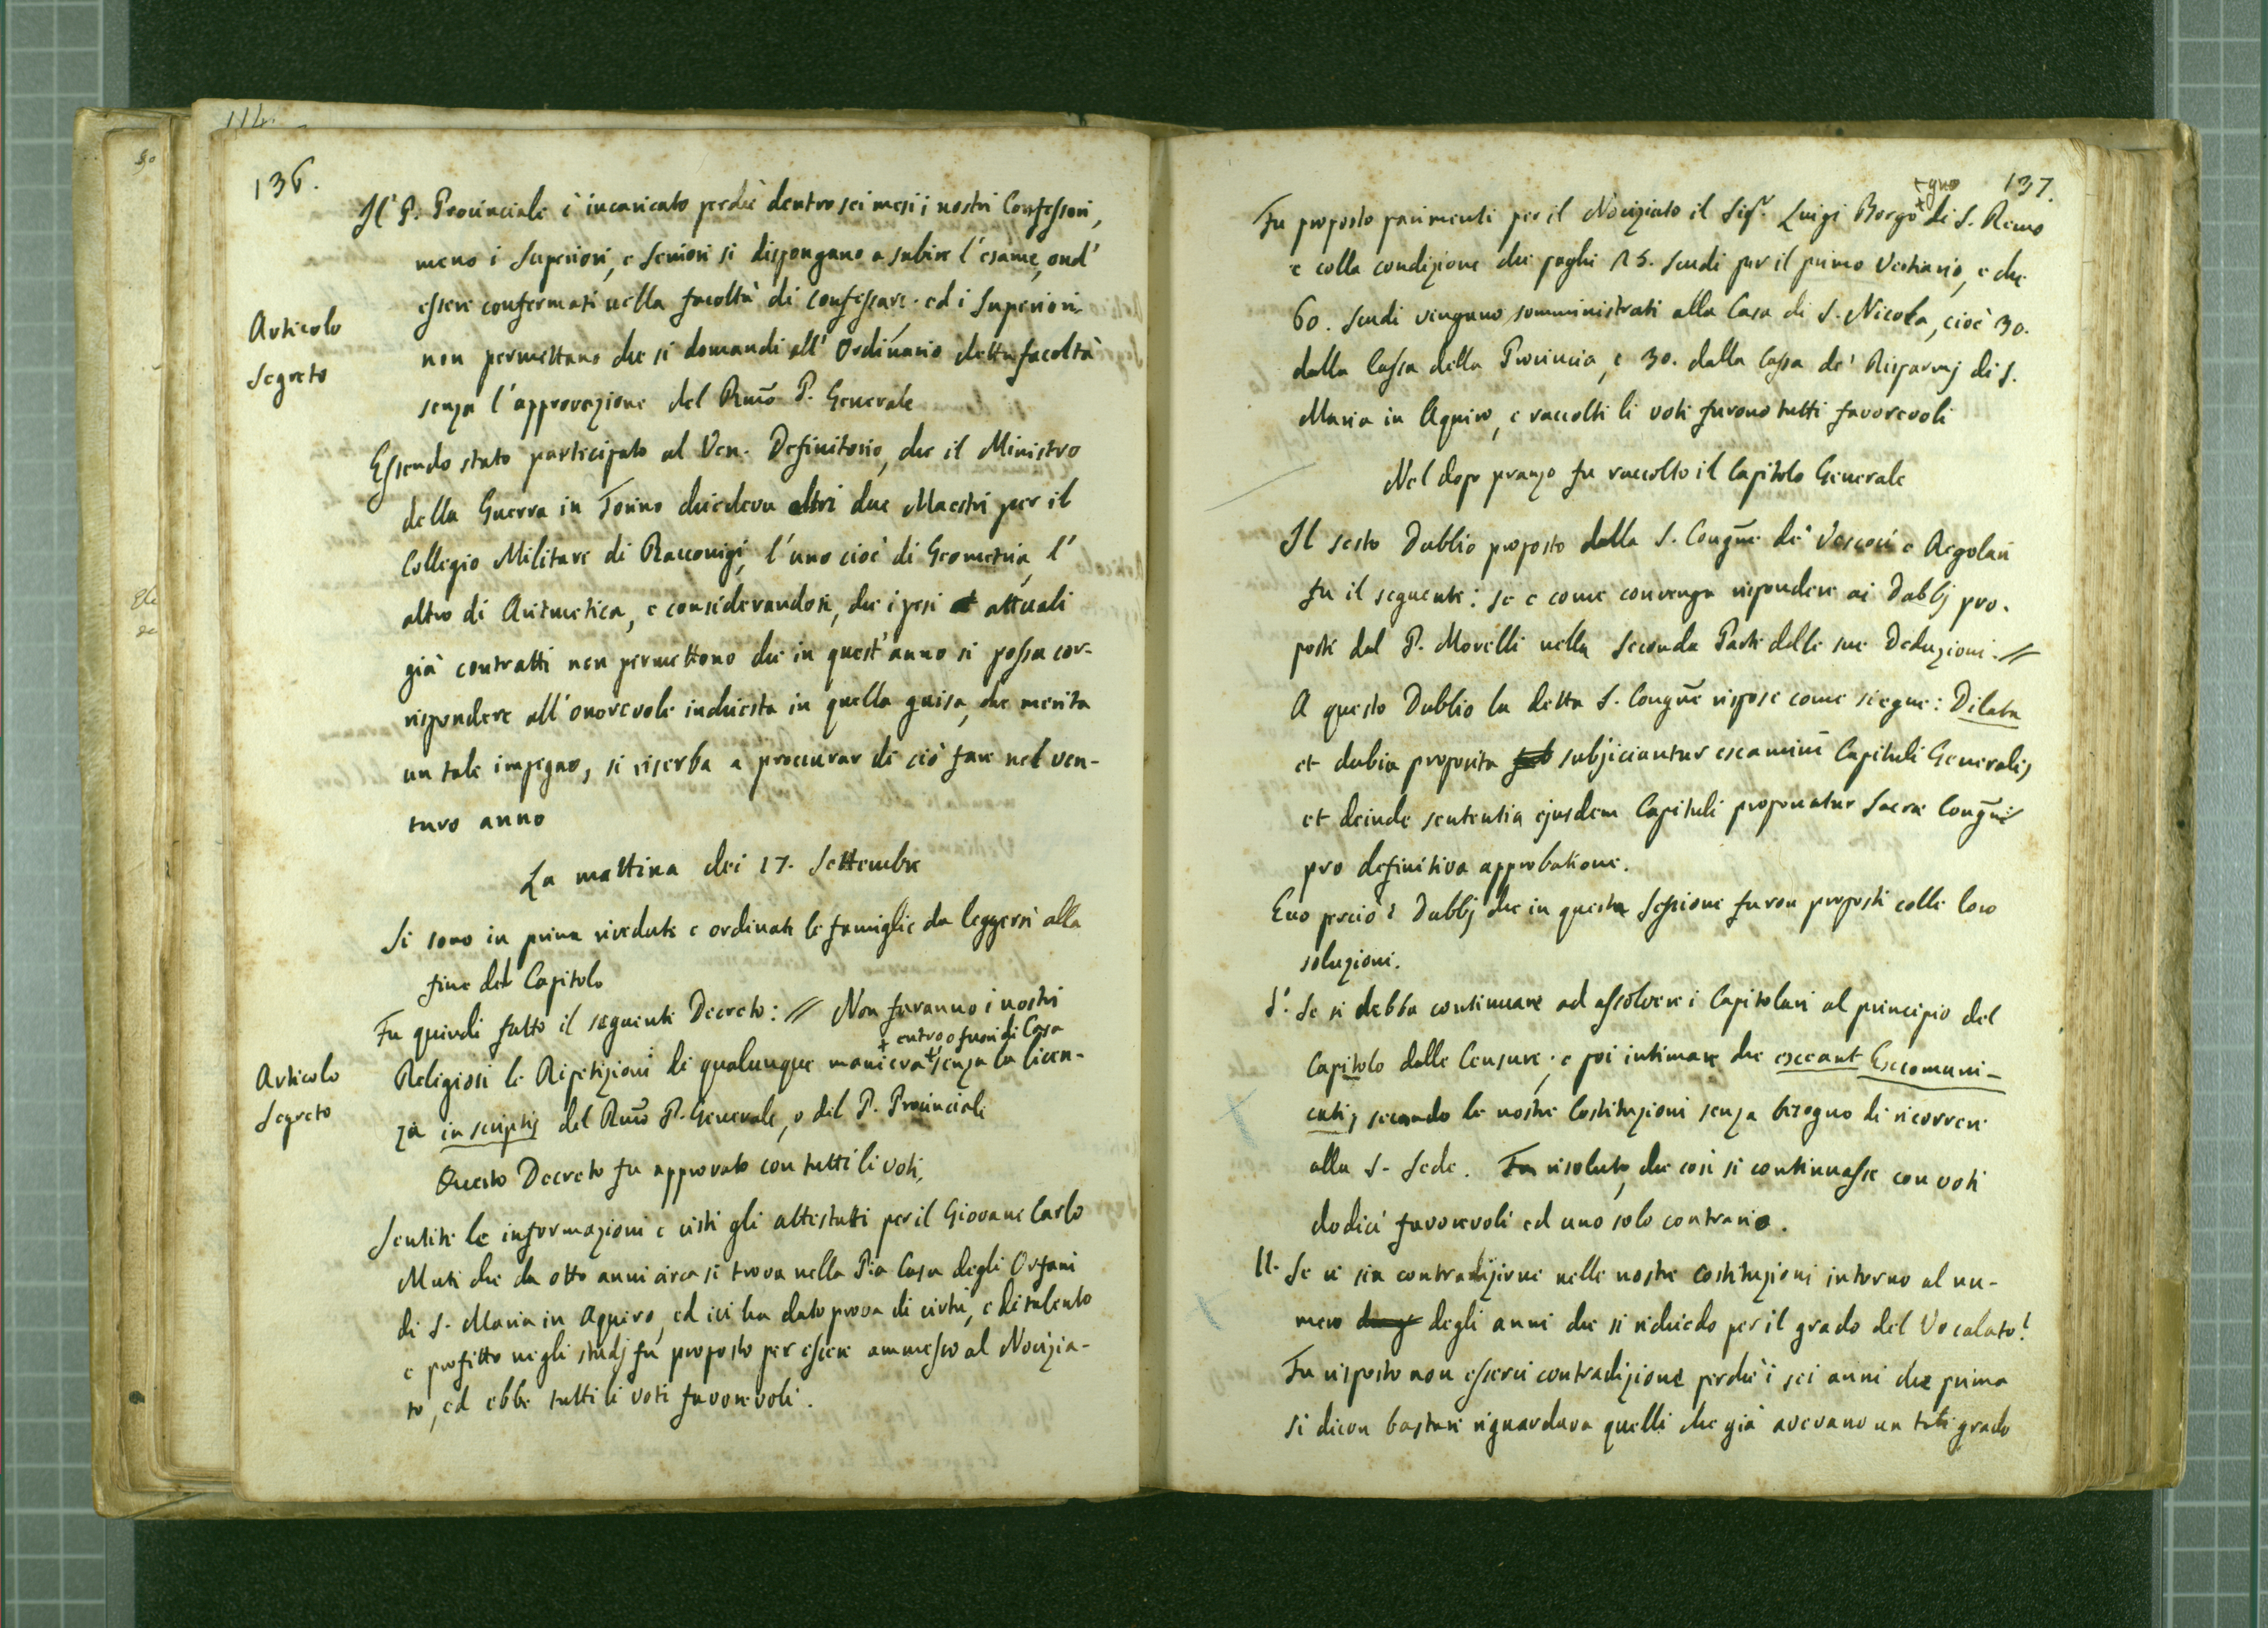 114.
136.
Il P. Provinciale è incaricato perchè dentro sei mesi i nostri Confessori,
meno i Superiori, e Seniori si dispongano a subire l'esame, ond'
essere confermati nella facoltà di confessare. ed i Superiori
Articolo
Segreto
non permettano che si domandi all'Ordinario detta facoltà
senza l'approvazione del Rmo P. Generale
Essendo stato participato al Ven. Definitorio, che il Ministro
della Guerra in Torino chiedeva altri due Maestri per il
Collegio Militare di Racconigi, l'uno cioè di Geometria, l'
altro di Aritmetica, e considerandosi, che i pesi attuali
già contratti non permettono che in quest'anno si possa cor-
rispondere all'onorevole inchiesta in quella guisa, che merita
un tale impegno, si riserba a procurar di ciò fare nel ven-
turo anno
La mattina dei 17. Settembre
Si sono in prima rivedute e ordinate le famiglie da leggersi alla
fine del Capitolo
Fu quindi fatto il seguente Decreto: // Non faranno i nostri
+ entro o fuori di Casa
Articolo
Segreto
Religiosi le Ripetizioni di qualunque maniera + senza la licen-
za in scriptis del Rmo P. Generale, o del P. Provinciale
Questo Decreto fu approvato con tutti li voti,
Sentite le informazioni e visti gli attestati per il Giovane Carlo
Muti che da otto anni circa si trova nella Pia Casa degli Orfani
di S. Maria in Aquiro, ed ivi ha dato prova di virtù, e di talento
e profitto negli studj fu proposto per essere ammesso al Novizia-
to, ed ebbe tutti li voti favorevoli.
137.
+gno
Fu proposto parimenti per il Noviziato il Sigr. Luigi Borgo + di S. Remo
e colla condizione che paghi 25. Scudi per il primo Vestiario, e che
60. Scudi vengano somministrati alla Casa di S. Nicola, cioè 30.
dalla Cassa della Provincia, e 30. dalla Cassa de' Risparmj di S.
Maria in Aquiro, e raccolti li voti furono tutti favorevoli
Nel dopo pranzo fu raccolto il Capitolo Generale
Il sesto Dubbio proposto dalla S. Congne de' Vescovi e Regolari
fu il seguente: Se e come convenga rispondere ai Dubbj pro-
posti dal P. Morelli nella Seconda Parte delle sue Deduzioni. //
A questo Dubbio la detta S. Congne rispose come siegue: Dilata
et dubia proposita sub subjiciantur examini Capituli Generalis,
et deinde sententia ejusdem Capituli proponatur Sacrae Congni
pro definitiva approbatione.
Evo perciò i Dubbj che in questa Sessione furon proposti colle loro
soluzioni.
I. Se si debba continuare ad assolvere i Capitolari al principio del
Capitolo dalle Censure, e poi intimare che exeant Excomuni-
cati, secondo le nostre Costituzioni senza bisogno di ricorrere
alla S. Sede. Fu risoluto, che così si continuasse con voti
dodici favorevoli ed uno solo contrario.
II. Se vi sia contradizione nelle nostre Costituzioni intorno al nu-
mero degli anni che si richiedo per il grado del Vocalato?
Fu risposto non esservi contradizione perchè i sei anni che prima
si dicon bastare riguardava quelli che già avevano un tale grado